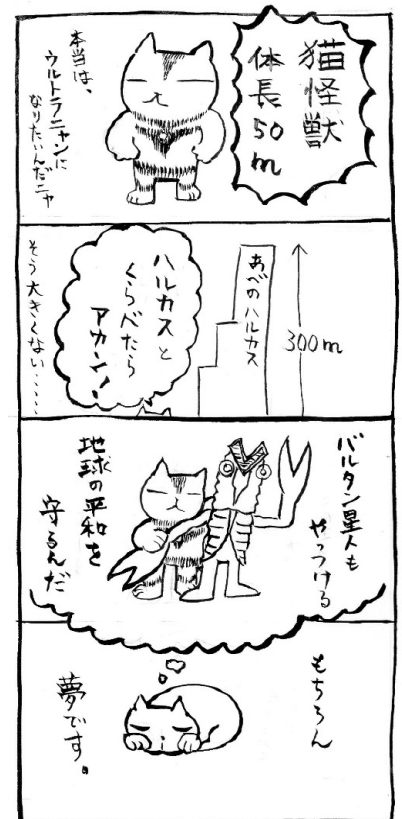 猫怪獣
体長50m
本当は、
ウルトラニャンに
なりたいんだニャ
300m
あべのハルカス
ハルカスと
くらべたら
アカン!
そう大きくない……
バルタン星人も
やっつける
地球の平和を
守るんだ
もちろん
夢です。